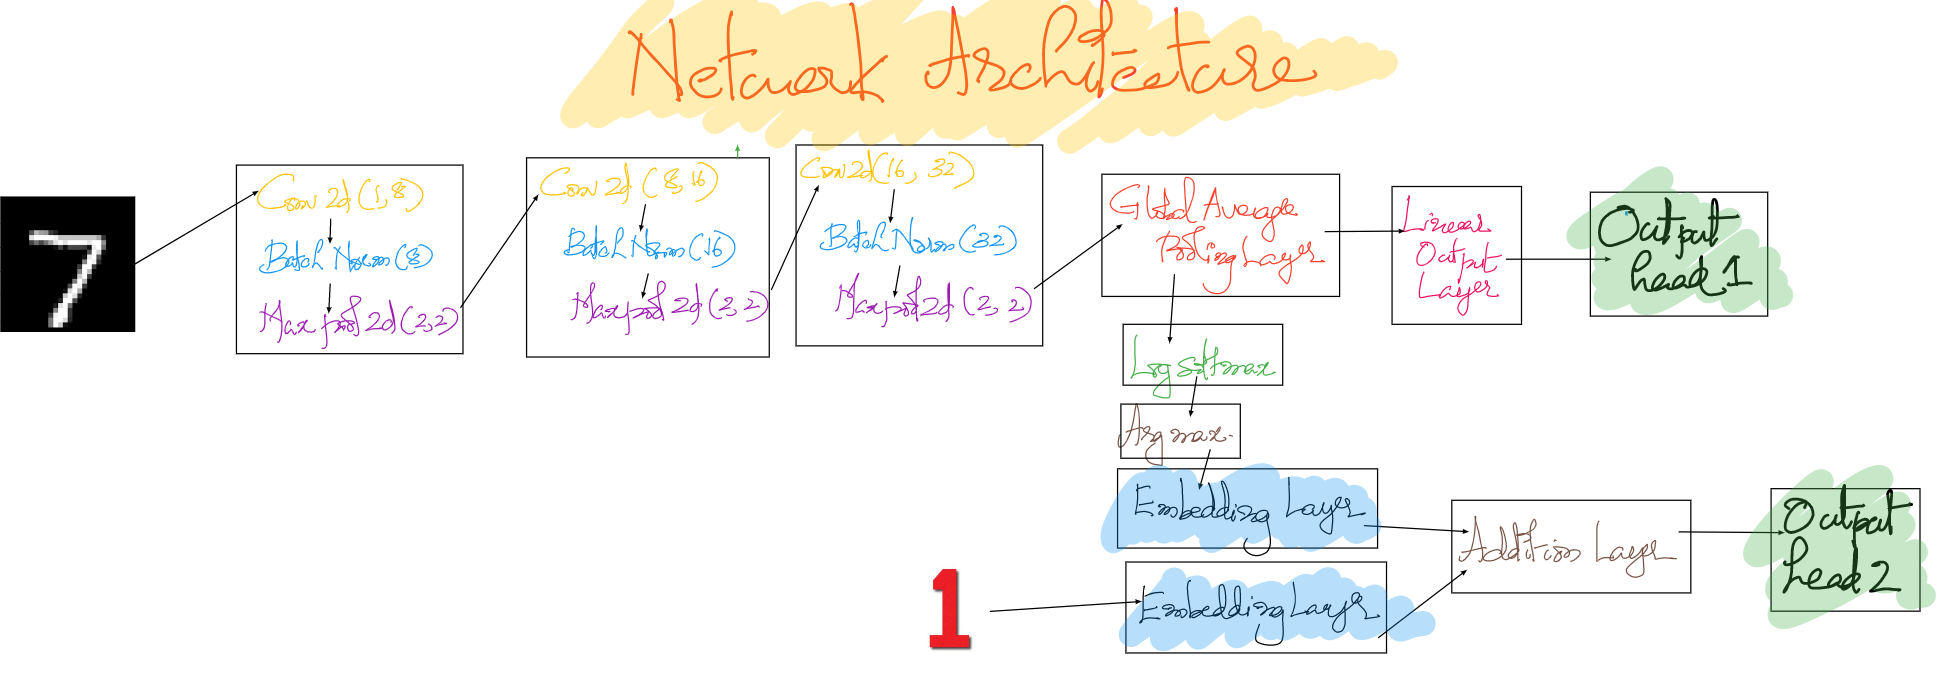 Network Architecture
7
Conv2d(1,8)
BatchNorm(8)
Maxpool2d(2,2)
Conv2d(8,16)
BatchNorm(16)
Maxpool2d(2,2)
Conv2d(16, 32)
BatchNorm(32)
Maxpool2d(2,2)
Global Average
Pooling Layer
Linear
Output
Layer
Output
head1
Log softmax
Argmax
Embedding Layer
1
Embedding Layer
Addition Layer
Output
head2